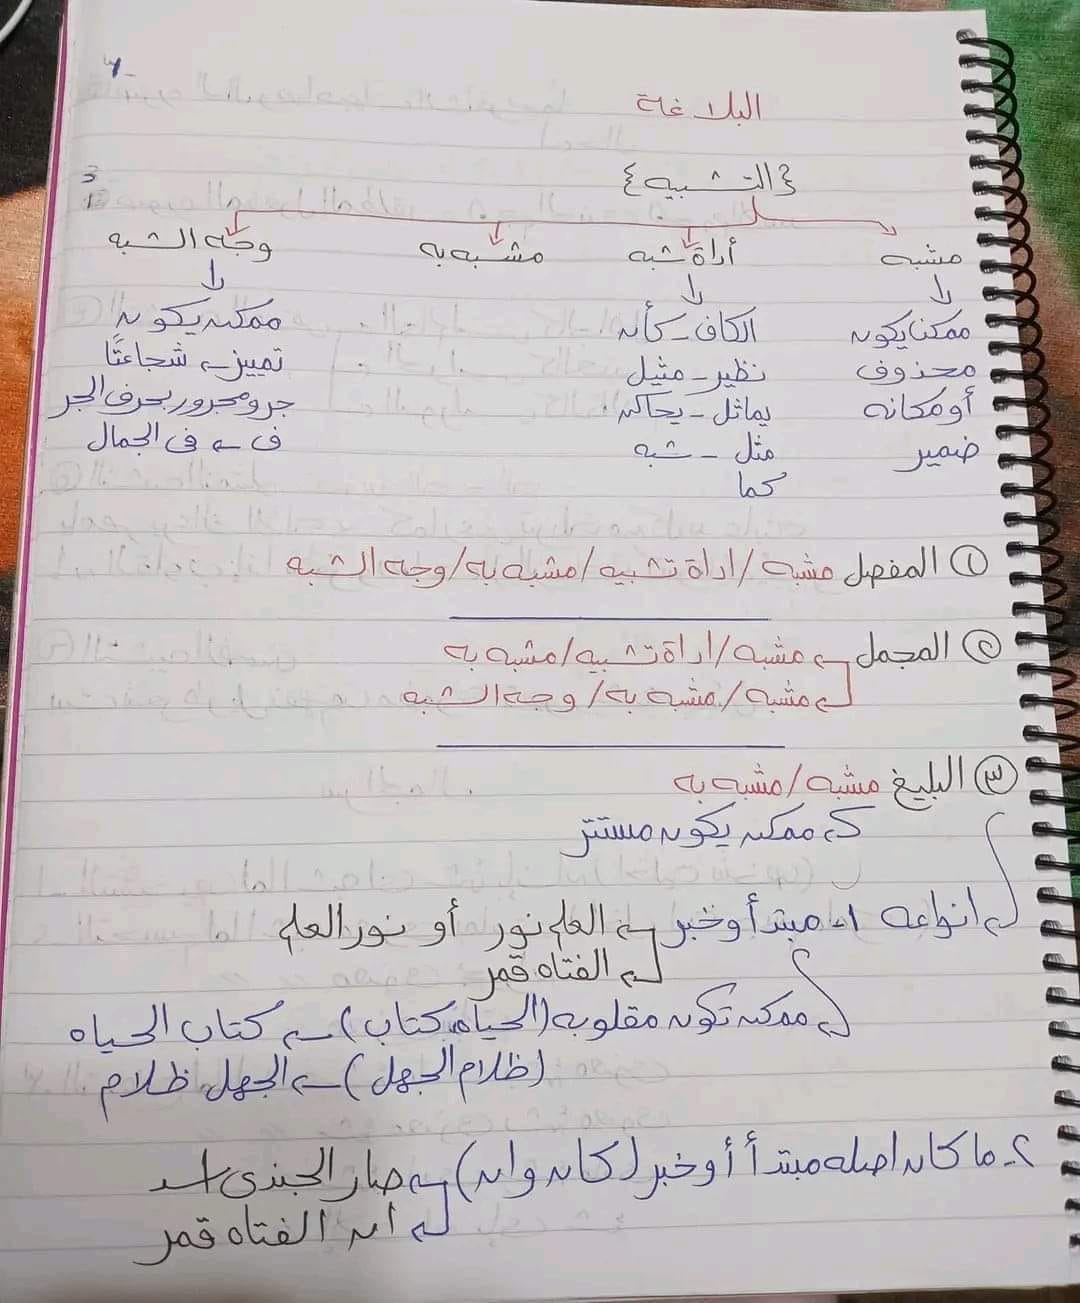 البلاغة
{التشبيه}
مشبه
أداة شبه
مشبه به
وجه الشبه
ممكن يكون
محذوف
أو مكانه
ضمير
الكاف - كأن
نظير - مثيل
يماثل - يحاكى
مثل - شبه
كما
ممكن يكون
تمييز ← شجاعتًا
جر ومجرور بحرف الجر
فى ← فى الجمال
① المفصل مشبه/اداة تشبيه/مشبه به/وجه الشبه
② المجمل ← مشبه/اداة تشبيه/مشبه به
← مشبه/مشبه به/وجه الشبه
③ البليغ مشبه/مشبه به
ممكن يكون مستتر
← انواعه ١- مبتدأ وخبر ← العلم نور أو نور العلم
← الفتاه قمر
← ممكن تكون مقلوبه (الحياه كتاب) ← كتاب الحياه
(ظلام الجهل) ← الجهل ظلام
٢- ما كان اصله مبتدأ أو خبر (كان وان) ← صار الجندى اسد
← ان الفتاه قمر